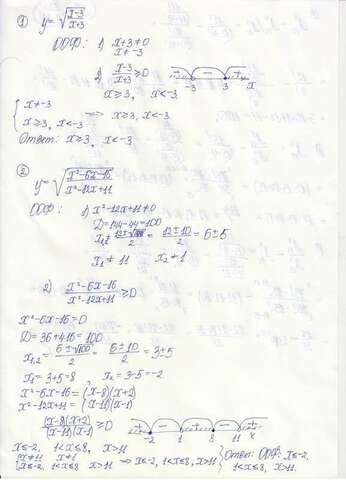 ① y=√((x-3)/(x+3))
ООФ: 1) x+3≠0
x≠-3
2) (x-3)/(x+3)≥0
+ - +
-3 3 x
x≥3, x<-3
{x≠-3
x≥3, x<-3 => x≥3, x<-3
Ответ: x≥3, x<-3
② y=√((x²-6x-16)/(x²-12x+11))
ООФ: 1) x²-12x+11≠0
D=144-44=100
x₁,₂≠(12±√100)/2=(12±10)/2=6±5
x₁≠11 x₂≠1
2) (x²-6x-16)/(x²-12x+11)≥0
x²-6x-16=0
D=36+4·16=100
x₁,₂=(6±√100)/2=(6±10)/2=3±5
x₁=3+5=8, x₂=3-5=-2
x²-6x-16=(x-8)(x+2)
x²-12x+11=(x-11)(x-1)
((x-8)(x+2))/((x-11)(x-1))≥0
+ - + - +
-2 1 8 11 x
x≤-2, 1<x≤8, x>11
{x≠11 x≠1
x≤-2, 1<x≤8 x>11 => x≤-2, 1<x≤8, x>11
Ответ: ООФ: x≤-2
1<x≤8, x>11